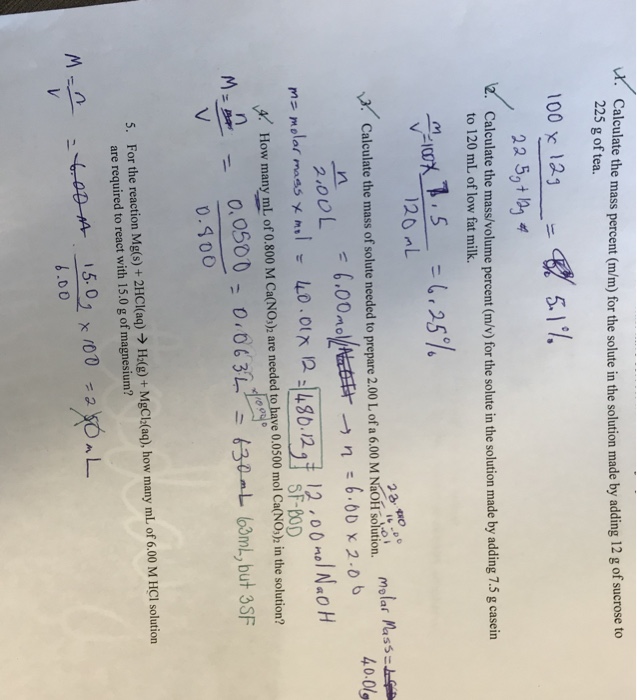 1. Calculate the mass percent (m/m) for the solute in the solution made by adding 12 g of sucrose to
225 g of tea.
100 x 12g = 5.1%
225g+12g
2. Calculate the mass/volume percent (m/v) for the solute in the solution made by adding 7.5 g casein
to 120 mL of low fat milk.
m/v = 100 x 7.5 = 6.25%
120mL
3. Calculate the mass of solute needed to prepare 2.00 L of a 6.00 M NaOH solution.
16.00
1.01
molar Mass =
40.01g
n = 6.00 mol → n = 6.00 x 2.00
2.00L
12.00 mol NaOH
m = molar mass x mol = 40.01 x 12 = 480.12g
SF-BOD
4. How many mL of 0.800 M Ca(NO3)2 are needed to have 0.0500 mol Ca(NO3)2 in the solution?
M = n/v = 0.0500 = 0.063L = 630mL 63mL, but 3SF
x1000
5. For the reaction Mg(s) + 2HCl(aq) → H2(g) + MgCl2(aq), how many mL of 6.00 M HCl solution
are required to react with 15.0 g of magnesium?
M = n/v = 6.00 M . 15.0g x 100 = 250mL
6.00